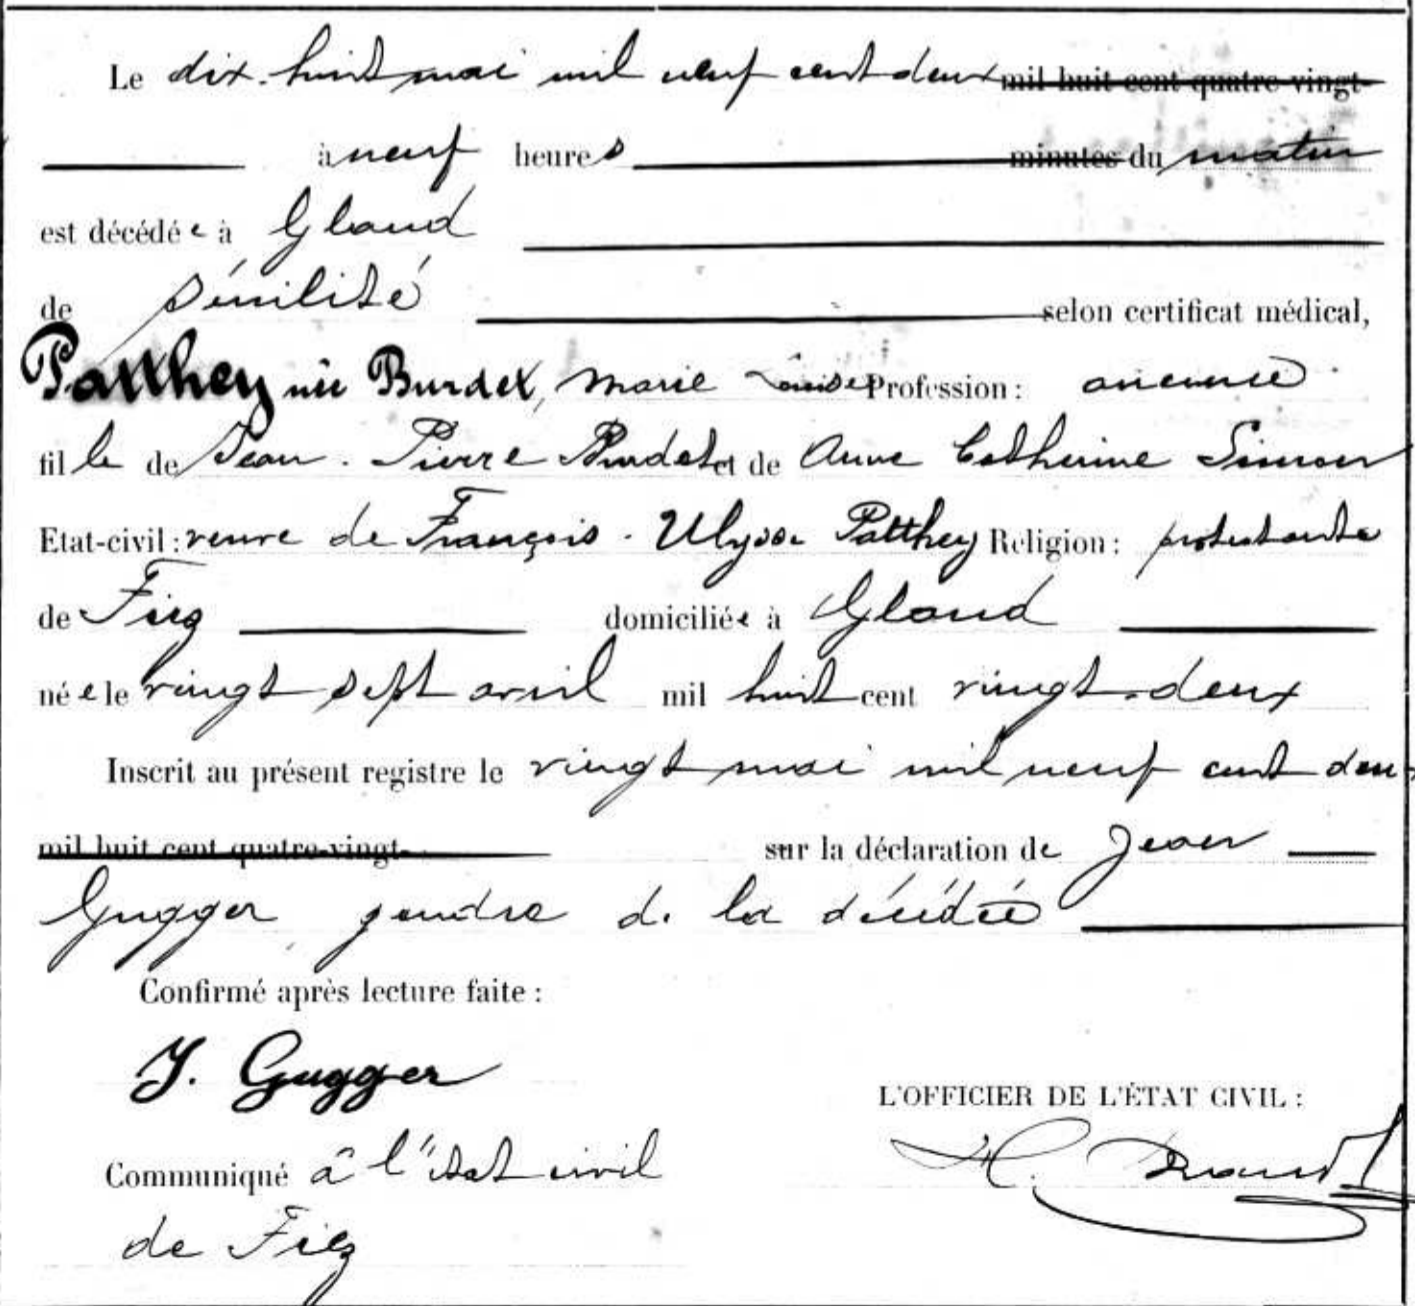 Le dix-huit mai mil neuf cent deux mil huit cent quatre-vingt-
à neuf heures minutes du matin
est décédée à Gland
de sénilité selon certificat médical,
Patthey née Burdet, Marie Louise Profession : aucune
fille de Jean-Pierre Burdet et de Anne Catherine Simon
Etat-civil : veuve de François-Ulysse Patthey Religion : protestante
de Fiez domiciliée à Gland
née le vingt sept avril mil huit cent vingt-deux
Inscrit au présent registre le vingt mai mil neuf cent deux
mil huit cent quatre-vingt- sur la déclaration de Jean
Gugger, gendre de la décédée
Confirmé après lecture faite :
J. Gugger
L'OFFICIER DE L'ÉTAT CIVIL :
Communiqué à l'état civil
de Fiez